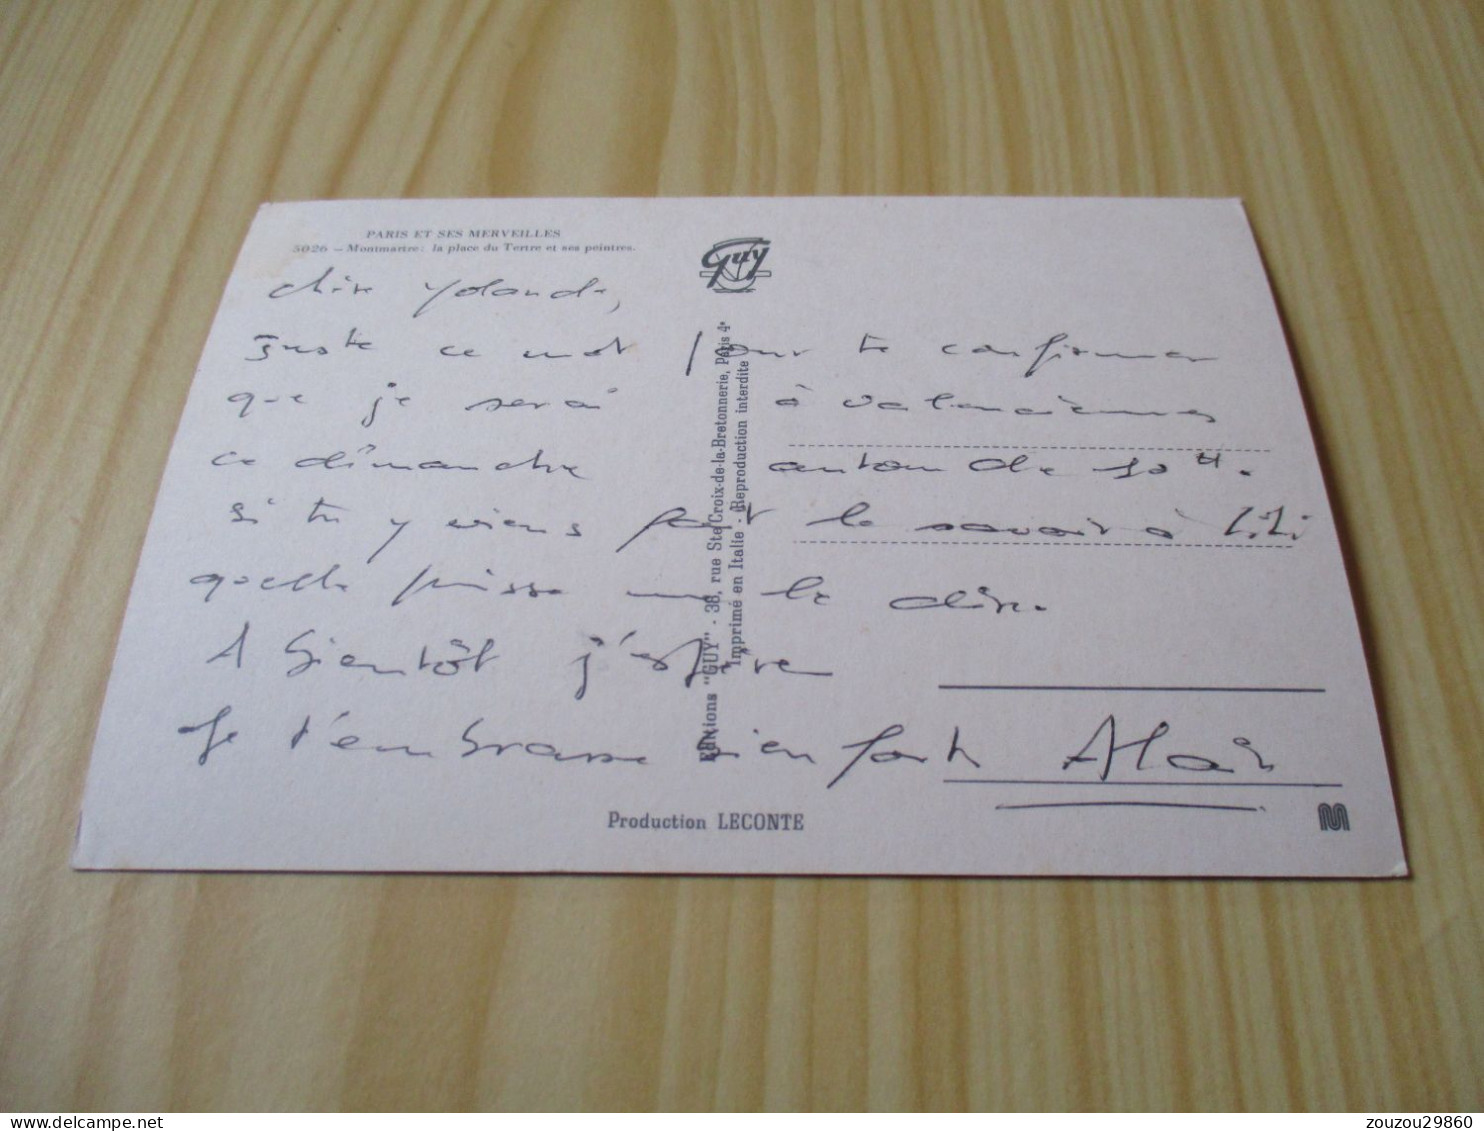 PARIS ET SES MERVEILLES
5026 - Montmartre : la place du Tertre et ses peintres.
Guy
chère Yolande,
juste ce mot pour te confirmer
que je serai à Valenciennes
ce dimanche autour de 10 H.
si tu y viens fait le savoir à Lili
quelle puisse me le dire.
A bientôt j'espère
Je t'embrasse bien fort Alain
Editions "GUY" - 38, rue Ste Croix-de-la-Bretonnerie, Paris 4e
Imprimé en Italie - Reproduction interdite
Production LECONTE
M
zouzou29860